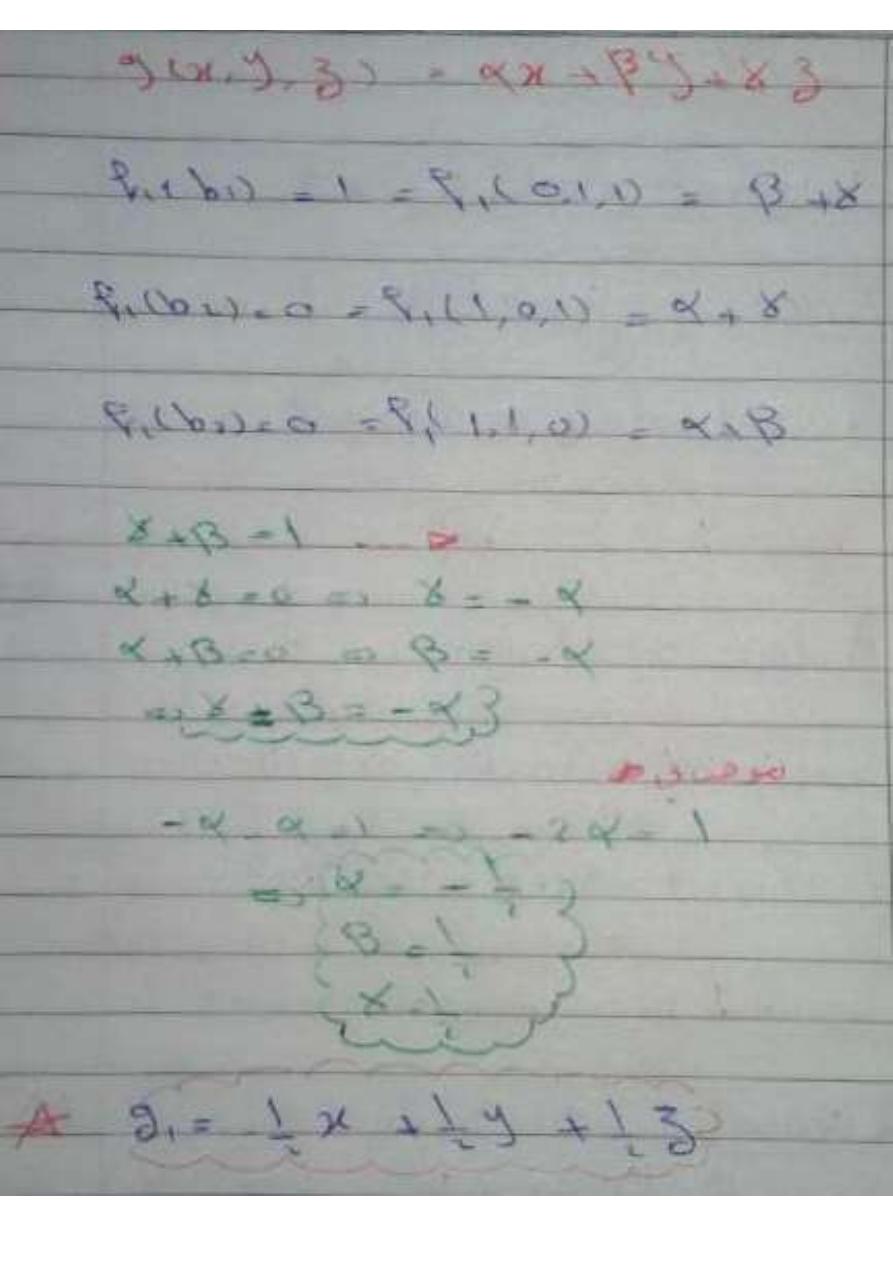 g(x, y, z) = αx + βy + γz
f₁(b₁) = 1 = f₁(0,1,1) = β + γ
f₁(b₂) = 0 = f₁(1,0,1) = α + γ
f₁(b₃) = 0 = f₁(1,1,0) = α + β
γ + β = 1
α + γ = 0 ⇒ γ = -α
α + β = 0 ⇒ β = -α
⇒ γ = β = -α }
-α - α = 1 ⇒ -2α = 1
⇒ α = -1/2
β = 1/2
γ = 1/2
g₁ = -1/2 x + 1/2 y + 1/2 z